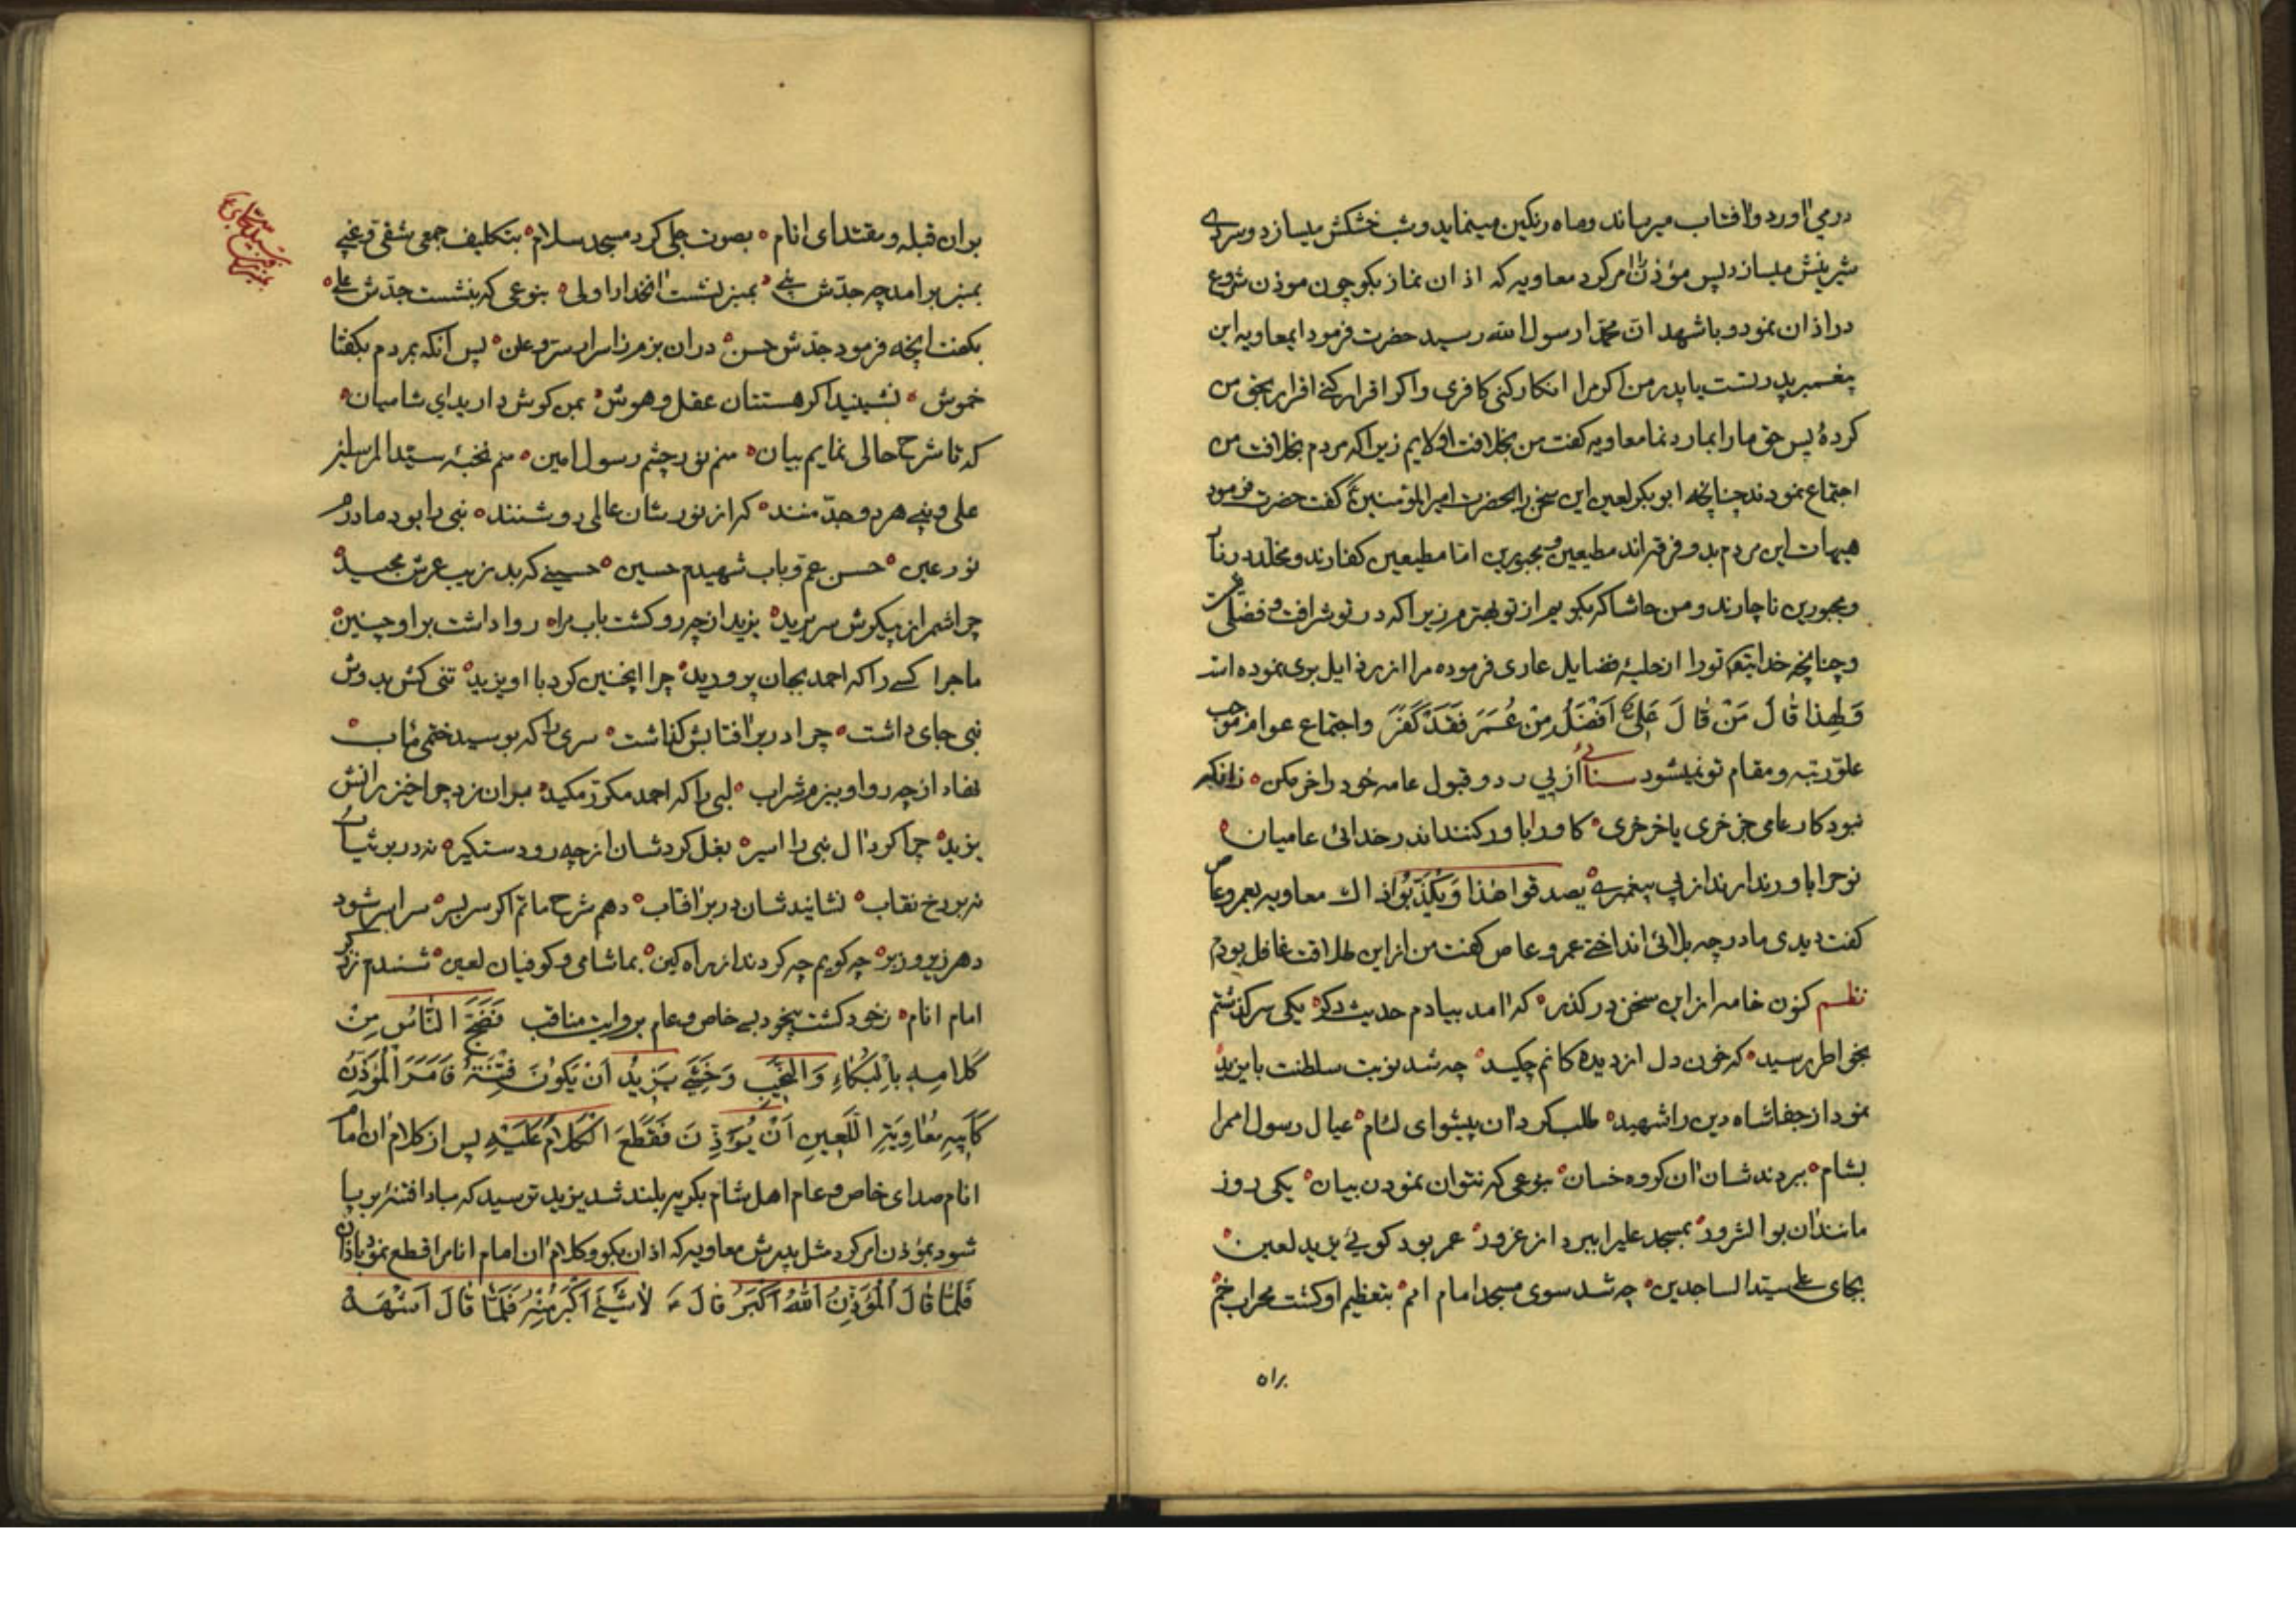 درمی آورد و آفتاب میرساند و ماه رنکین مینماید و شب خشکش میسازد و سردی
شیرینش میسازد پس مؤذن را امر کرد معاویه که اذان نماز بکو چون موذن شروع
در اذان نمود و باشهد ان محمدا رسول الله رسید حضرت فرمود ایمعاویه این
پیغمبر پدر تست یا پدر من اکر مرا انکار کنی کافری و اکر اقرار کنی اقرار بحق من
کردهٔ پس حق ما را بما رد نما معاویه کفت من بخلافت اولایم زیرا که مردم بخلافت من
اجتماع نمودند چنانچه ابوبکر لعین این سخن را بحضرت امیرالمؤمنین ع گفت حضرت فرمود
هیهات این مردم بد و فرقه اند مطیعین و مجبورین اما مطیعین کفارند و مخلد در نار
و مجبورین ناچارند و من حاشا که بکویم از تو بهترم زیرا که در تو شرافت و فضلی نیست
و چنانچه خدایتعم تو را از حلیهٔ فضایل عاری فرموده مرا از رذایل بری نموده است
وَلِهذا قالَ مَنْ قالَ عَلِیٌّ اَفْضَلُ مِنْ عُمَرَ فَقَدْ كَفَرَ واجتماع عوام موجب
علوّ رتبه و مقام تو نمیشود سنائی از پی رد و قبول عامه خود را خر مکن ه زانکه
نبود کار عامی جز خری یا خر خری ه کاو را باور کنند اندر خدائی عامیان ه
نوح را باور ندارند از پی پیغمبری ه یصدقوا هذا وَیُکَذِّبُوا ذاک معاویه بعمرو عاص
کفت دیدی مادر چه بلائی انداختی عمرو عاص کفت من از این طلاقت غافل بودم
نظم کنون خامه از این سخن در کذر ه که آمد بیادم حدیث دکر ه یکی سرکذشتم
بخواطر رسید ه که خون دل از دیده کانم چکید ه چه شد نوبت سلطنت با یزید
نمود از جفا شاه دین را شهید ه طلب کرد آن پیشوای لئام ه عیال رسول امم را
بشام ه ببردند شان آن کروه خسان ه بنوعی که نتوان نمودن بیان ه یکی روز
مانند آن بوالشرور ه بمسجد علیرا ببرد از غرور ه عمر بود کوئی یزید لعین ه
بجای علی سید الساجدین ه چه شد سوی مسجد امام امم ه بتعظیم او کشت محراب خم ه
بر آن
بر آن قبله و مقتدای انام ه بصوت جلی کرد مسجد سلام ه بتکلیف جمعی شقی و غبی
بمنبر برآمد چه جدّش نبی ه بمنبر نشست آنخدا را ولی ه بنوعی که بنشست جدّش علی ه
بکفت آنچه فرمود جدّش حسن ه در آن بزم ز اسرار سرّ و علن ه پس آنکه بمردم بکفتا
خموش ه نشینید اکر هستتان عقل و هوش ه بمن کوش دارید ای شامیان ه
که تا شرح حالی نمایم بیان ه منم نور چشم رسول امین ه منم نخبهٔ سیّد المرسلین
علی و نبی هر دو جدّ منند ه که از نور شان عالمی روشنند ه نبی را بود مادرم
نور عین ه حسن عمّ و باب شهیدم حسین ه حسینی که بد زیب عرش مجید ه
چرا شمر از پیکرش سر برید ه یزید از چه رو کشت باب مرا ه روا داشت بر او چنین
ماجرا کسی را که احمد بجان پرورید ه چرا اینچنین کرد با او یزید ه تنی کش بدوش
نبی جای داشت ه چرا در بر آفتابش کذاشت ه سری را که بوسید ختمی مئاب ه
نهاد از چه رو او ببزم شراب ه لبی را که احمد مکرّر مکید ه بر آن زد چرا خیزرانش
یزید ه چرا کرد آل نبی را اسیر ه بغل کرد شان از چه رو دستکیر ه نه در بر ثیاب
نه بر رخ نقاب ه نشانید شان در بر آفتاب ه دهم شرح ماتم اکر سر بسر ه سراسر شود
دهر زیر و زبر ه چه کویم چه کردند از راه کین ه بما شامی و کوفیان لعین ه شنیدم ز ذکر
امام انام ه زخود کشت بیخود بسی خاص و عام بروایت مناقب فَضَجَّ النّاسُ مِنْ
كَلامِهِ بِالْبُكاءِ وَالنَّحِيبِ وَخَشِيَ يَزِيدُ اَنْ يَكُونَ فِتْنَةٌ فَاَمَرَ الْمُؤَذِّنَ
كَاَبِيهِ مُعاوِيَةِ اللَّعِينِ اَنْ يُوَذِّنَ فَقَطَعَ الْكَلامَ عَلَيْهِ پس از کلام آن امام
انام صدای خاص و عام اهل شام بکریه بلند شد یزید ترسید که مبادا فتنه بر پا
شود بمؤذن امر کرد مثل پدرش معاویه که اذان بکو و کلام آن امام انام را قطع نمود باذان
فَلَمّا قالَ الْمُؤَذِّنُ اَللهُ اَكْبَرُ قالَ ع لاشَيْءَ اَكْبَرُ مِنْهُ فَلَمّا قالَ اَشْهَدُ